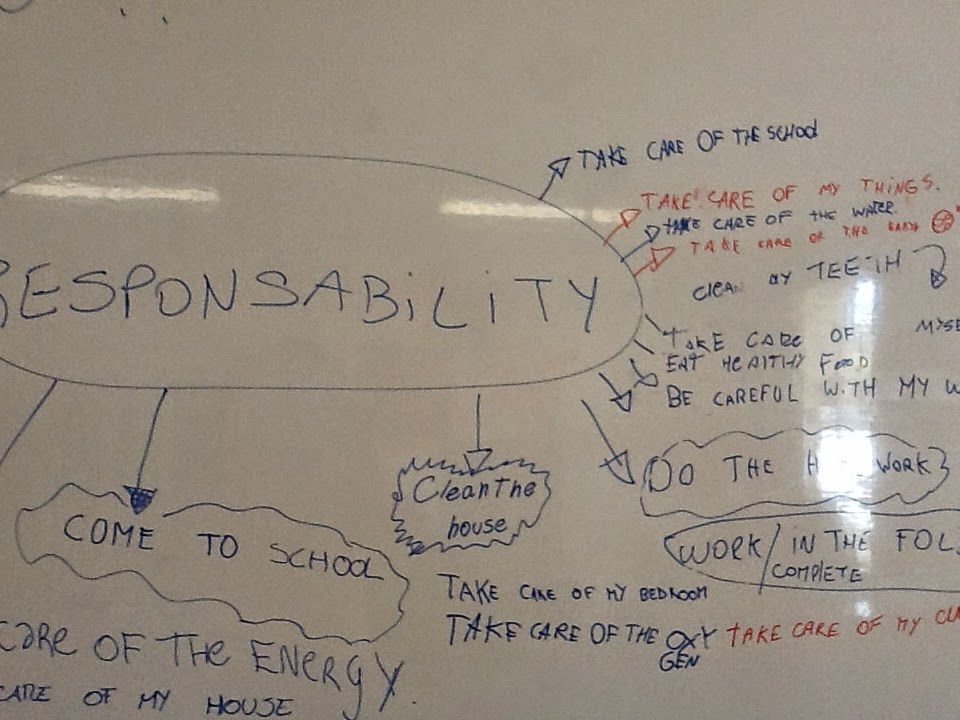 TAKE CARE OF THE SCHOOL
TAKE CARE OF MY THINGS.
TAKE CARE OF THE WATER.
TAKE CARE OF THE EARTH
CLEAN MY TEETH
RESPONSABiLiTY
TAKE CARE OF
EAT HEALTHY FOOD
BE CAREFUL WITH MY
DO THE HOMEWORK
Clean The
house
COME TO SCHOOL
WORK / IN THE
COMPLETE
TAKE CARE OF MY BEDROOM
TAKE CARE OF THE OXY
GEN
TAKE CARE OF MY
CARE OF THE ENERGY.
CARE OF MY HOUSE